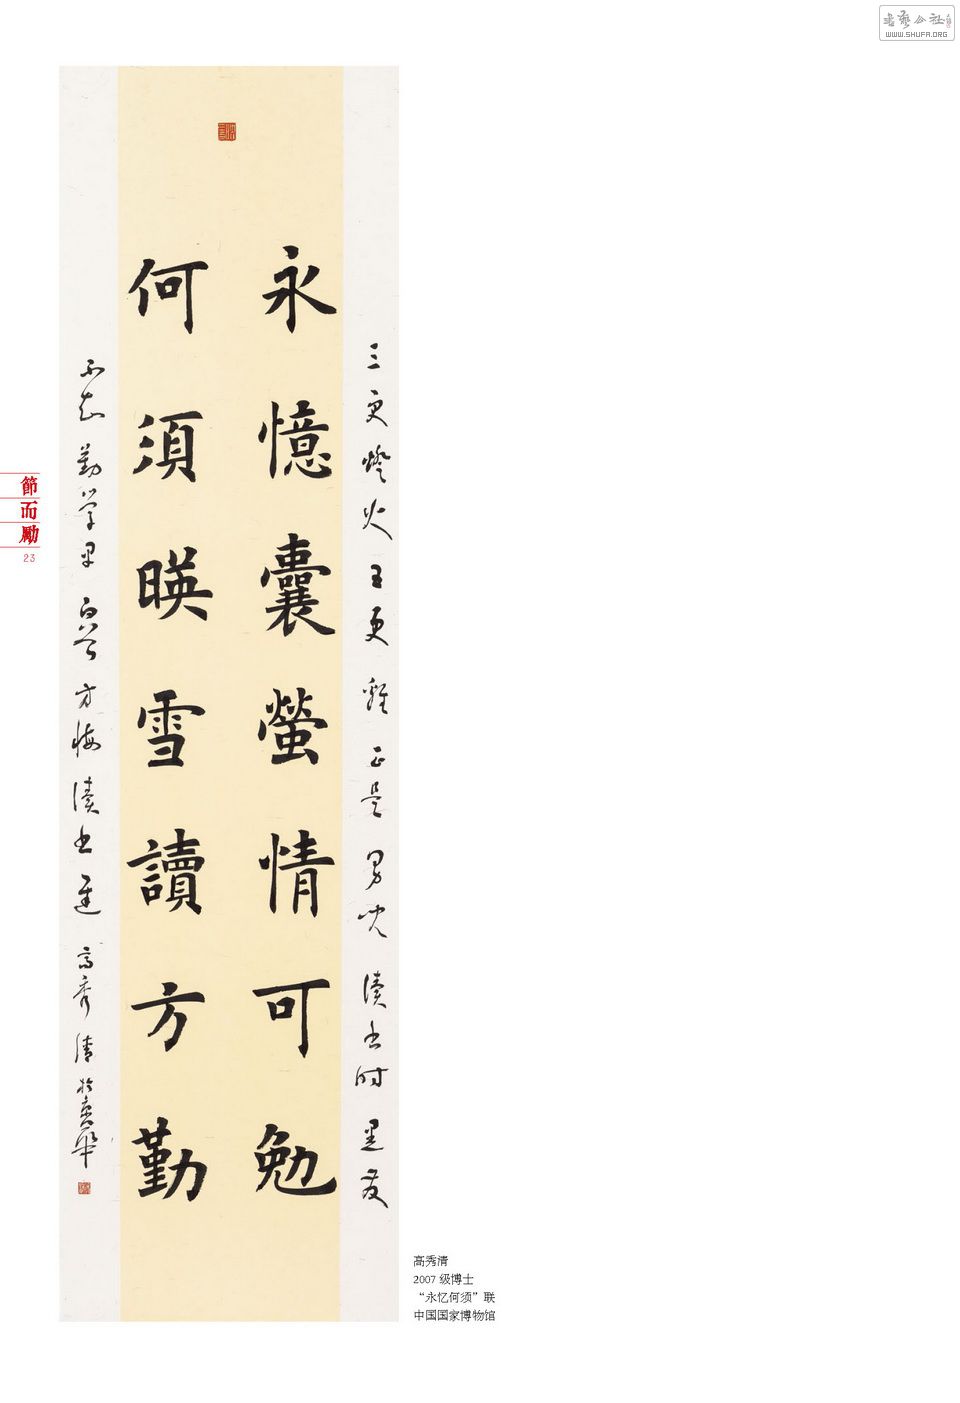 書藝公社
WWW.SHUFA.ORG
三更燈火五更雞正是男兒讀书时黑发
永憶囊螢情可勉
何須暎雪讀方勤
不知勤学早白首方悔讀书遲高秀清於京華
節而勵
23
高秀清
2007 级博士
“永忆何须”联
中国国家博物馆